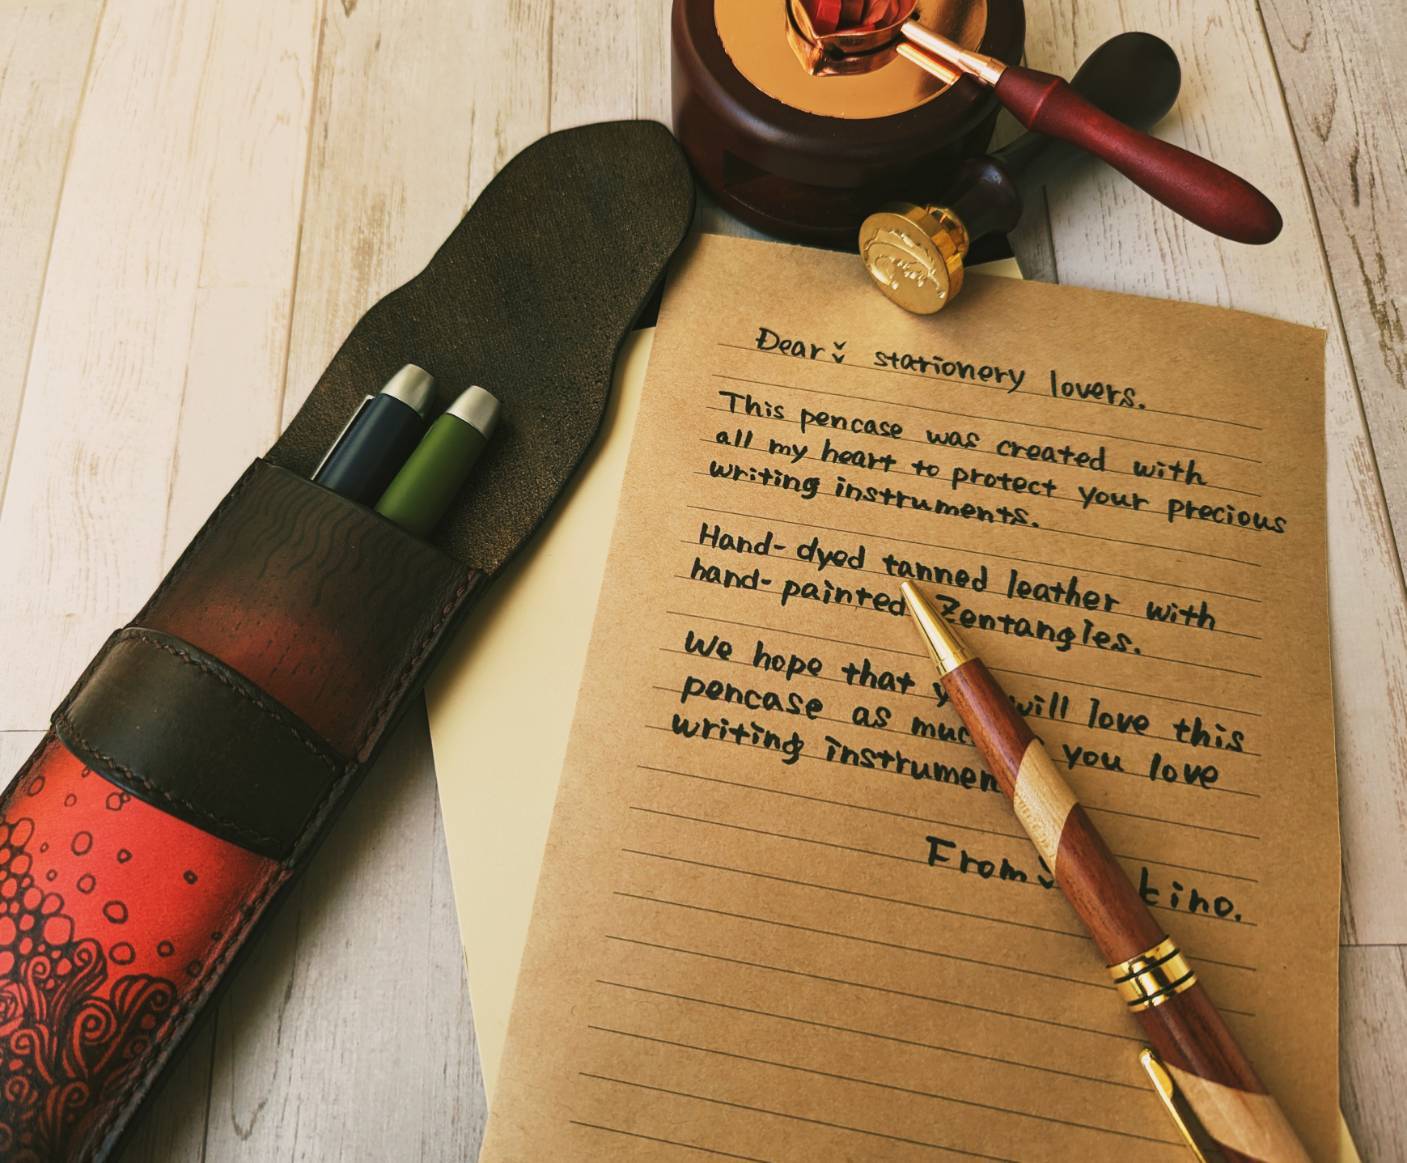 Dear stationery lovers.
This pencase was created with
all my heart to protect your precious
writing instruments.
Hand-dyed tanned leather with
hand-painted Zentangles.
We hope that will love this
pencase as you love
writing
From